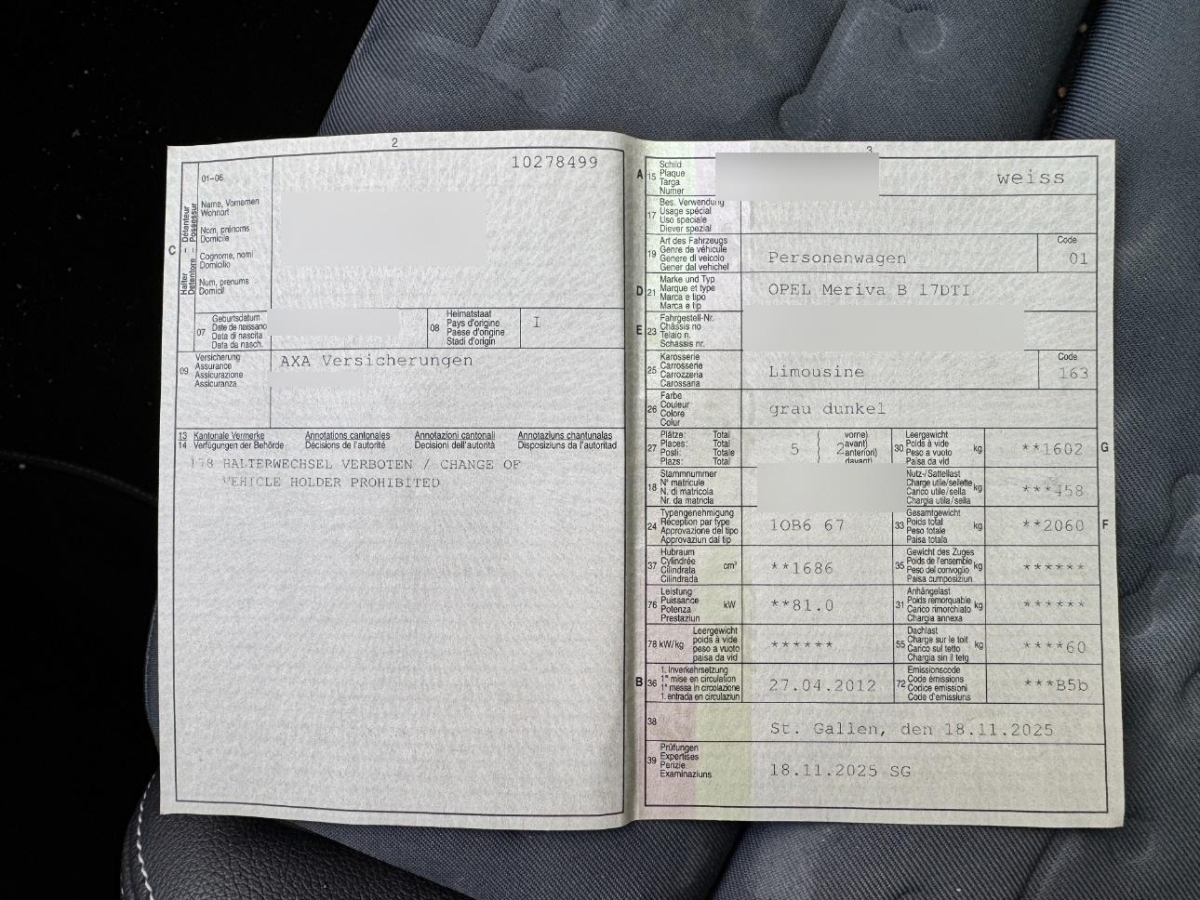 2
10278499
01–06
C
Halter – Détenteur
Detentore – Possessur
Name, Vornamen
Wohnort
Nom, prénoms
Domicile
Cognome, nomi
Domicilio
Num, prenums
Domicil
07
Geburtsdatum
Date de naissance
Data di nascita
Data da nasch.
08
Heimatstaat
Pays d'origine
Paese d'origine
Stadi d'origin
I
09
Versicherung
Assurance
Assicurazione
Assicuranza
AXA Versicherungen
13 Kantonale Vermerke Annotations cantonales Annotazioni cantonali Annotaziuns chantunalas
14 Verfügungen der Behörde Décisions de l'autorité Decisioni dell'autorità Disposiziuns da l'autoritad
178 HALTERWECHSEL VERBOTEN / CHANGE OF
VEHICLE HOLDER PROHIBITED
3
A 15
Schild
Plaque
Targa
Numer
weiss
17
Bes. Verwendung
Usage spécial
Uso speciale
Diever spezial
19
Art des Fahrzeugs
Genre de véhicule
Genere di veicolo
Gener dal vehichel
Personenwagen
Code
01
D 21
Marke und Typ
Marque et type
Marca e tipo
Marca e tip
OPEL Meriva B 17DTI
E 23
Fahrgestell-Nr.
Châssis no
Telaio n.
Schassis nr.
25
Karosserie
Carrosserie
Carrozzeria
Carossaria
Limousine
Code
163
26
Farbe
Couleur
Colore
Colur
grau dunkel
27
Plätze: Total
Places: Total
Posti: Totale
Plazs: Total
5
2
vorne)
avant)
anteriori)
davant)
30
Leergewicht
Poids à vide
Peso a vuoto
Paisa da vid
kg
**1602
G
18
Stammnummer
N° matricule
N. di matricola
Nr. da matricla
Nutz-/Sattellast
Charge utile/sellette
Carico utile/sella
Chargia utila/sella
kg
***458
24
Typengenehmigung
Réception par type
Approvazione del tipo
Approvaziun dal tip
1OB6 67
33
Gesamtgewicht
Poids total
Peso totale
Paisa totala
kg
**2060
F
37
Hubraum
Cylindrée
Cilindrata
Cilindrada
cm³
**1686
35
Gewicht des Zuges
Poids de l'ensemble
Peso del convoglio
Paisa cumposiziun
kg
******
76
Leistung
Puissance
Potenza
Prestaziun
kW
**81.0
31
Anhängelast
Poids remorquable
Carico rimorchiato
Chargia annexa
kg
******
78 kW/kg
Leergewicht
poids à vide
peso a vuoto
paisa da vid
******
55
Dachlast
Charge sur le toit
Carico sul tetto
Chargia sin il tetg
kg
****60
B 36
1. Inverkehrsetzung
1re mise en circulation
1a messa in circolazione
1. entrada en circulaziun
27.04.2012
72
Emissionscode
Code émissions
Codice emissioni
Code d'emissiuns
***B5b
38
St. Gallen, den 18.11.2025
39
Prüfungen
Expertises
Perizie
Examinaziuns
18.11.2025 SG